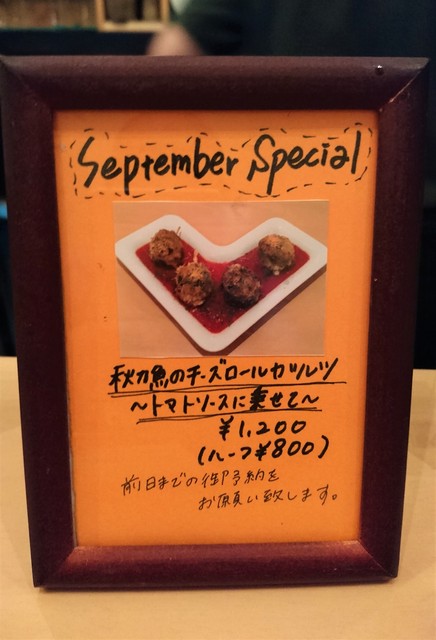 September Special
秋刀魚のチーズロールカツレツ
〜トマトソースに乗せて〜
¥1,200
(ハーフ¥800)
前日までの御予約を
お願い致します。